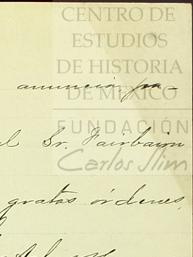 CENTRO DE
ESTUDIOS
DE HISTORIA
DE MÉXICO
anuncio pa-
FUNDACIÓN
al Sr. Fairbairn
Carlos Slim
gratas órdenes